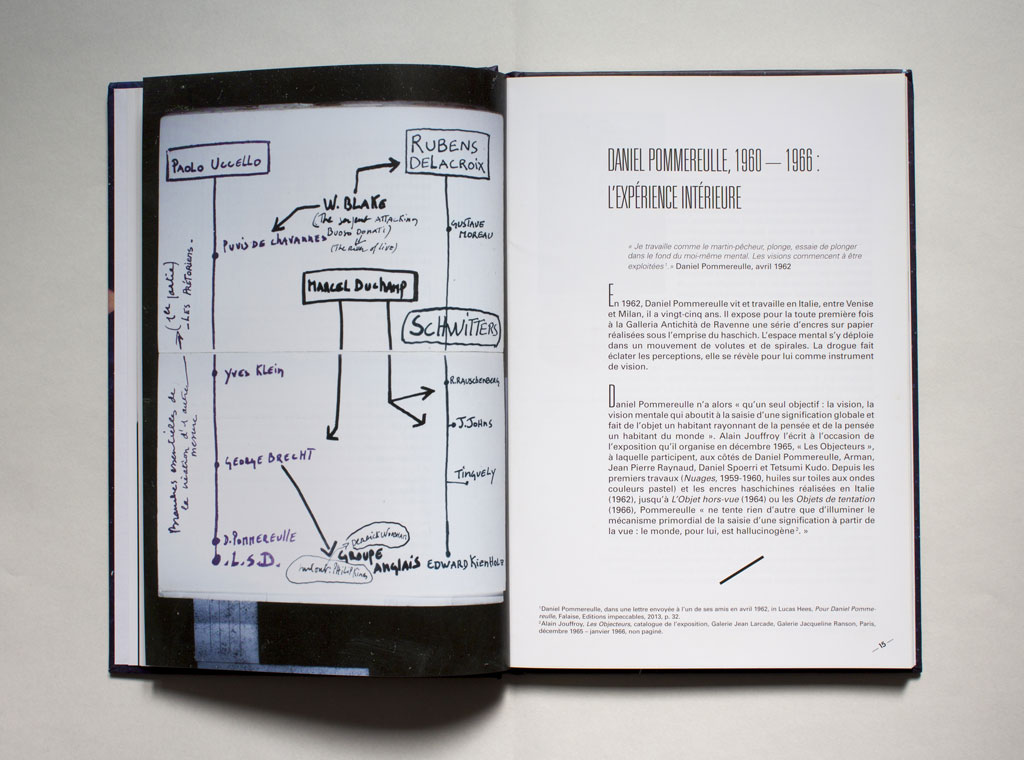 PAOLO UCCELLO
RUBENS
DELACROIX
W. BLAKE
(The serpent ATTACKING
BUOSO DONATI)
(The River of live)
PUVIS DE CHAVANNES
GUSTAVE
MOREAU
MARCEL DUCHAMP
SCHWITTERS
(1re partie)
- LES PRÉTORIENS.
YVES KLEIN
R. RAUSCHENBERG
J. JOHNS
Branches essentielles de
la création d'1 autre
mesure
GEORGE BRECHT
TINGUELY
D. POMMEREULLE
. L.S.D.
GROUPE
ANGLAIS
EDWARD KIENHOLZ
DANIEL POMMEREULLE, 1960 — 1966 :
L'EXPÉRIENCE INTÉRIEURE
« Je travaille comme le martin-pêcheur, plonge, essaie de plonger
dans le fond du moi-même mental. Les visions commencent à être
exploitées¹. » Daniel Pommereulle, avril 1962
En 1962, Daniel Pommereulle vit et travaille en Italie, entre Venise
et Milan, il a vingt-cinq ans. Il expose pour la toute première fois
à la Galleria Antichità de Ravenne une série d'encres sur papier
réalisées sous l'emprise du haschich. L'espace mental s'y déploie
dans un mouvement de volutes et de spirales. La drogue fait
éclater les perceptions, elle se révèle pour lui comme instrument
de vision.
Daniel Pommereulle n'a alors « qu'un seul objectif : la vision, la
vision mentale qui aboutit à la saisie d'une signification globale et
fait de l'objet un habitant rayonnant de la pensée et de la pensée
un habitant du monde ». Alain Jouffroy l'écrit à l'occasion de
l'exposition qu'il organise en décembre 1965, « Les Objecteurs »,
à laquelle participent, aux côtés de Daniel Pommereulle, Arman,
Jean Pierre Raynaud, Daniel Spoerri et Tetsumi Kudo. Depuis les
premiers travaux (Nuages, 1959-1960, huiles sur toiles aux ondes
couleurs pastel) et les encres haschichines réalisées en Italie
(1962), jusqu'à L'Objet hors-vue (1964) ou les Objets de tentation
(1966), Pommereulle « ne tente rien d'autre que d'illuminer le
mécanisme primordial de la saisie d'une signification à partir de
la vue : le monde, pour lui, est hallucinogène². »
¹Daniel Pommereulle, dans une lettre envoyée à l'un de ses amis en avril 1962, in Lucas Hees, Pour Daniel Pomme-
reulle, Falaise, Editions impeccables, 2013, p. 32.
²Alain Jouffroy, Les Objecteurs, catalogue de l'exposition, Galerie Jean Larcade, Galerie Jacqueline Ranson, Paris,
décembre 1965 – janvier 1966, non paginé.
—15—